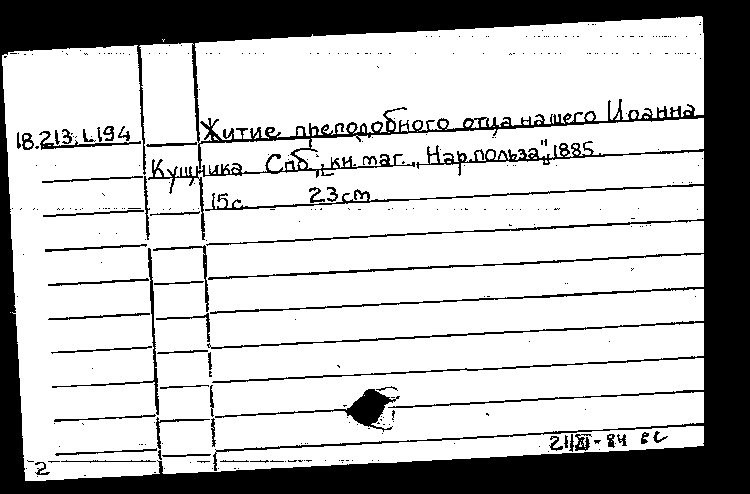 18.213.1.194 Житие преподобного отца нашего Иоанна
Кущника. Спб., кн. маг. „Нар. польза", 1885.
15с. 23cm
2